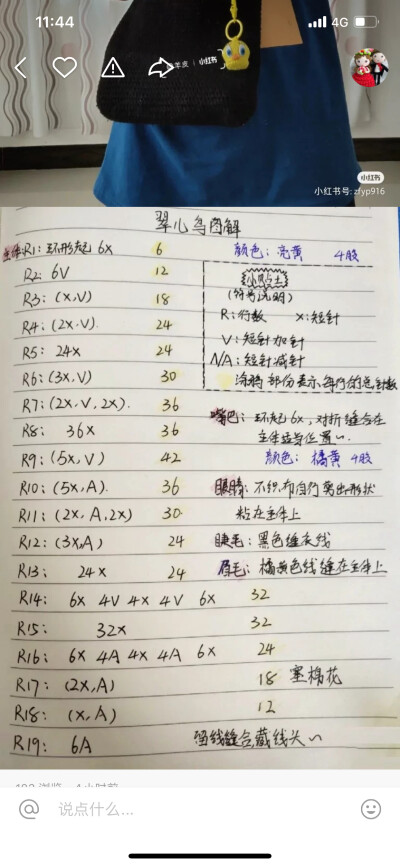 11:44
4G
小红书
小红书
小红书号: zfyp916
翠儿鸟图解
主体:R1: 环形起 6X 6 颜色: 亮黄 4股
R2: 6V 12
R3: (X,V) 18
R4: (2X.V) 24
R5: 24X 24
R6: (3X,V) 30
R7: (2X,V,2X). 36
R8: 36X 36
R9: (5X,V) 42
R10: (5X,A). 36
R11: (2X, A,2X) 30
R12: (3X,A) 24
R13: 24X 24
R14: 6X 4V 4X 4V 6X 32
R15: 32X 32
R16: 6X 4A 4X 4A 6X 24
R17: (2X,A) 18 塞棉花
R18: (X,A) 12
R19: 6A 留线缝合藏线头~
小贴士
(符号说明)
R: 行数 X: 短针
V: 短针加针
A: 短针减针
涂鸦部份表示每行的总针数
嘴巴: 环起6X,对折缝合在
主体适当位置~
颜色: 橘黄 4股
眼睛: 不织布自行剪出形状
粘在主体上
睫毛: 黑色缝衣线
眉毛: 橘黄色线缝在主体上
说点什么...